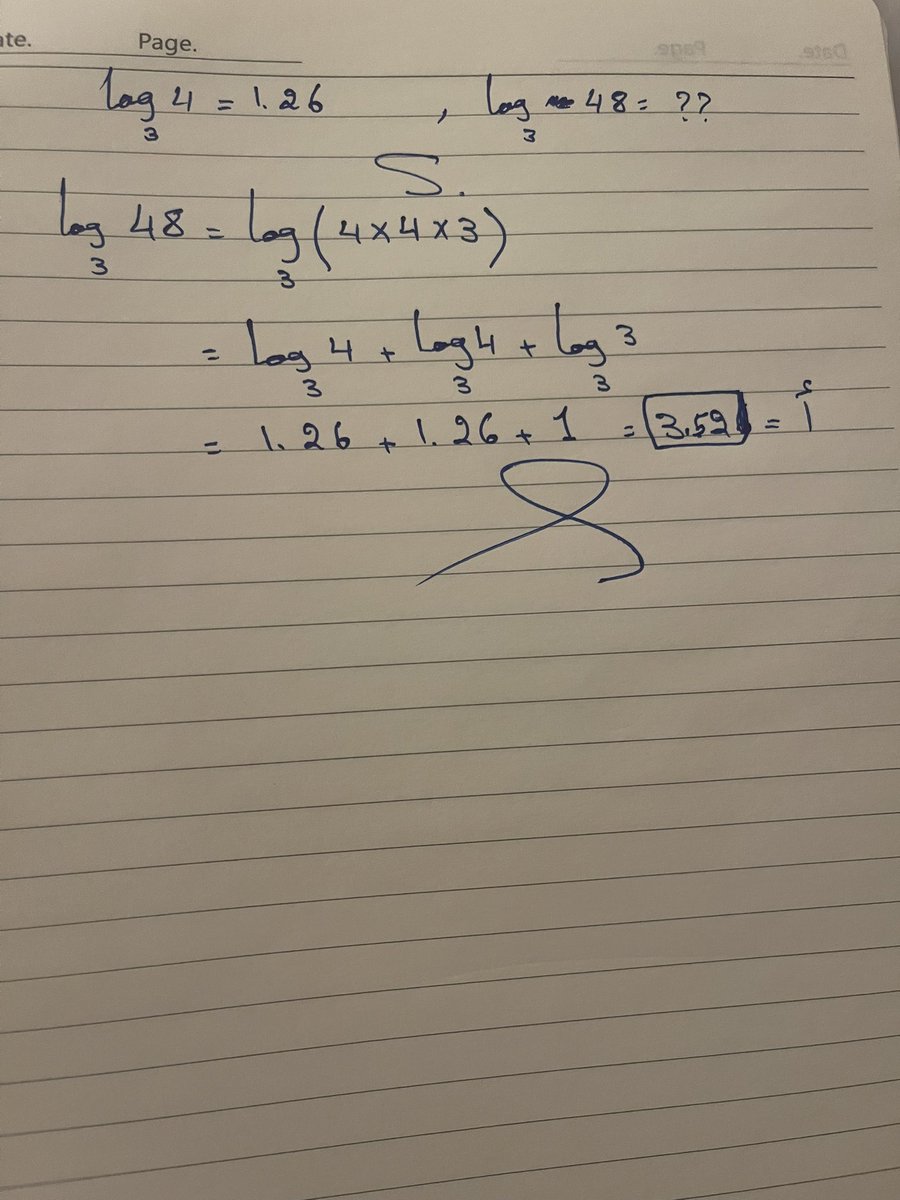 ate. Page.
log₃ 4 = 1.26 , log₃ 48 = ??
S.
log₃ 48 = log₃ (4×4×3)
= log₃ 4 + log₃ 4 + log₃ 3
= 1.26 + 1.26 + 1 = 3.52 = أ